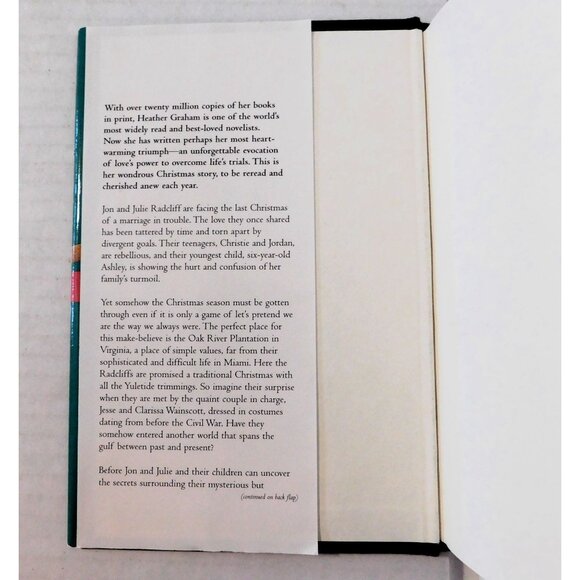 With over twenty million copies of her books
in print, Heather Graham is one of the world's
most widely read and best-loved novelists.
Now she has written perhaps her most heart-
warming triumph—an unforgettable evocation
of love's power to overcome life's trials. This is
her wondrous Christmas story, to be reread and
cherished anew each year.
Jon and Julie Radcliff are facing the last Christmas
of a marriage in trouble. The love they once shared
has been tattered by time and torn apart by
divergent goals. Their teenagers, Christie and Jordan,
are rebellious, and their youngest child, six-year-old
Ashley, is showing the hurt and confusion of her
family's turmoil.
Yet somehow the Christmas season must be gotten
through even if it is only a game of let's pretend we
are the way we always were. The perfect place for
this make-believe is the Oak River Plantation in
Virginia, a place of simple values, far from their
sophisticated and difficult life in Miami. Here the
Radcliffs are promised a traditional Christmas with
all the Yuletide trimmings. So imagine their surprise
when they are met by the quaint couple in charge,
Jesse and Clarissa Wainscott, dressed in costumes
dating from before the Civil War. Have they
somehow entered another world that spans the
gulf between past and present?
Before Jon and Julie and their children can uncover
the secrets surrounding their mysterious but
(continued on back flap)